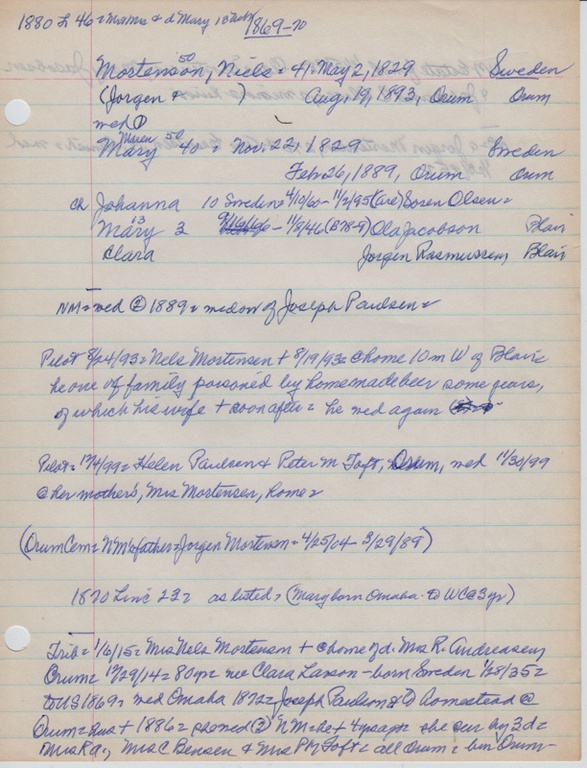 1880 L 46 = Mama & d Mary 13 Neb
1869-70
50
Mortenson, Niels = 41 = May 2, 1829 Sweden
(Jorgen & ) Aug. 19, 1893, Orum Orum
med ①
Maren 50
Mary 40 = Nov. 22, 1829 Sweden
Feb 26, 1889, Orum Orum
ch Johanna 10 Sweden = 4/10/60 - 11/2/95 (Cal) Soren Olsen =
13
Mary 3 9/16/66 - 11/8/46 (B78-9) Ola Jacobson Blair
Clara Jorgen Rasmussen Blair
NM = wed ② 1889 = widow of Joseph Paulsen =
Pilot 8/24/93 = Nels Mortensen + 8/19/93 = @ home 10 m W of Blair =
he one of family poisoned by homemade beer some years,
of which his wife + soon after = he wed again
Pilot = 12/4/99 = Helen Paulsen & Peter M Toft, Orum, wed 11/30/99
@ her mother's, Mrs Mortensen, home =
(Orum Cem = NM's father = Jorgen Mortensen = 4/25/04 - 3/29/89)
1870 Line 23 = as listed = (Mary born Omaha - to WC @ 3 yr)
Trib = 1/6/15 = Mrs Nels Mortensen + @ home of d. Mrs R. Andreasen,
Orum = 12/29/14 = 80 yr = nee Clara Larson - born Sweden 1/28/35 =
to US 1869 = wed Omaha 1872 = Joseph Paulsen & to homestead @
Orum = Hus + 1886 = she wed ② N.M = he + 4 yrs ago = she sur by 3 d =
Mrs RA, Mrs C Bensen & Mrs PM Toft = all Orum = bur Orum -